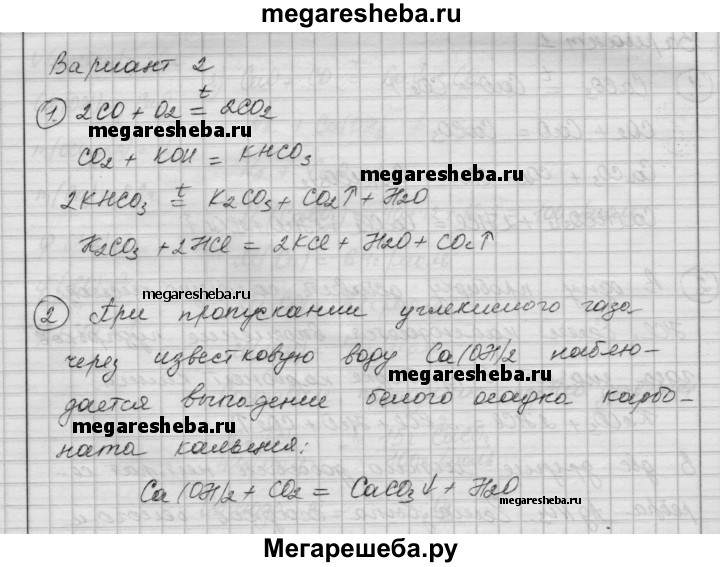 megaresheba.ru
Вариант 2
1. 2CO + O2 t= 2CO2
megaresheba.ru
CO2 + KOH = KHCO3
megaresheba.ru
2KHCO3 t= K2CO3 + CO2↑ + H2O
K2CO3 + 2HCl = 2KCl + H2O + CO2↑
megaresheba.ru
2 При пропускании углекислого газа
через известковую воду Ca(OH)2 наблю-
megaresheba.ru
дается выпадение белого осадка карбо-
megaresheba.ru
ната кальция:
Ca(OH)2 + CO2 = CaCO3↓ + H2O
megaresheba.ru
Мегарешеба.ру